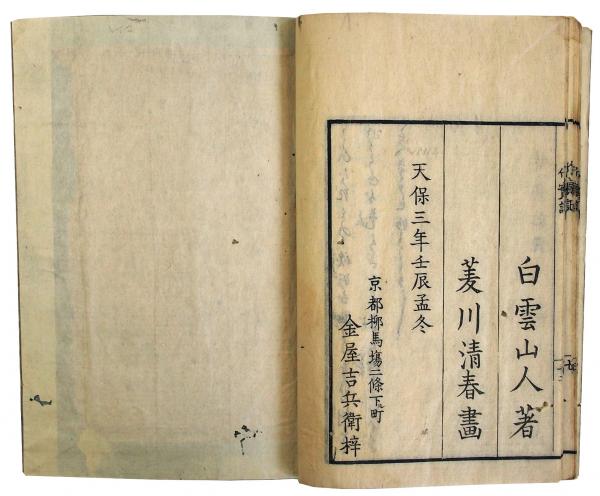 白雲山人著
菱川清春畫
天保三年壬辰孟冬
京都柳馬場二條下ル町
金屋吉兵衛梓